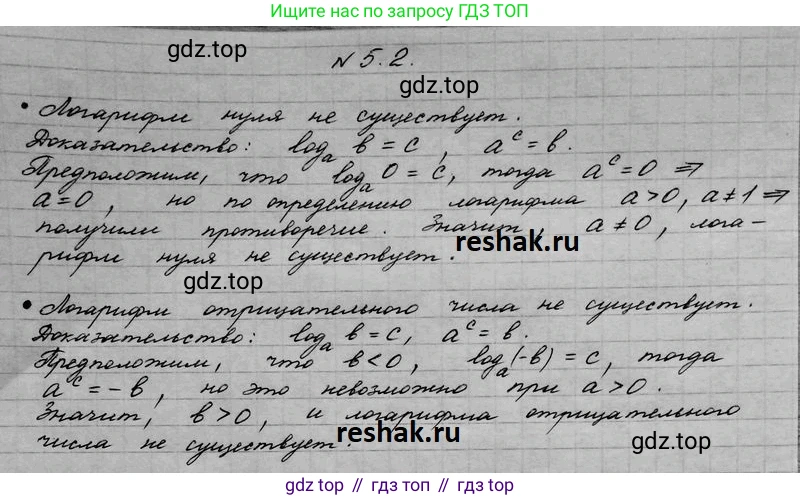 Ищите нас по запросу ГДЗ ТОП
gdz.top
№ 5.2.
gdz.top
• Логарифм нуля не существует.
Доказательство: logₐ b = c , aᶜ = b.
Предположим, что logₐ 0 = c, тогда aᶜ = 0 ⇒
a = 0 , но по определению логарифма a > 0, a ≠ 1 ⇒
получили противоречие. Значит, a ≠ 0 , лога-
reshak.ru
рифм нуля не существует.
gdz.top
• Логарифм отрицательного числа не существует.
Доказательство: logₐ b = c, aᶜ = b.
Предположим, что b < 0, logₐ(-b) = c, тогда
aᶜ = - b, но это невозможно при a > 0.
Значит, b > 0, и логарифма отрицательного
числа не существует.
reshak.ru
gdz.top
gdz.top // гдз.топ // gdz.top